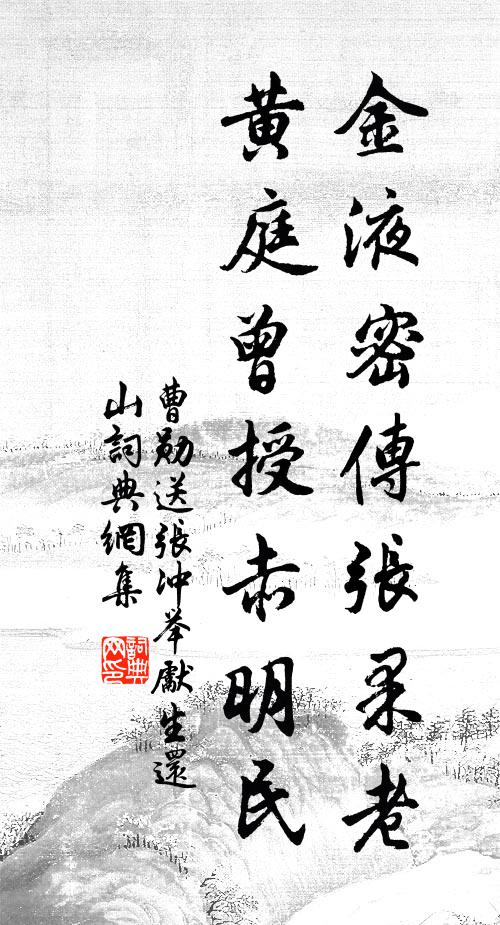 金液密傳張果老
黃庭曾授赤明民
曹勛送張冲举獻生還
山詞典網集
詞典网印